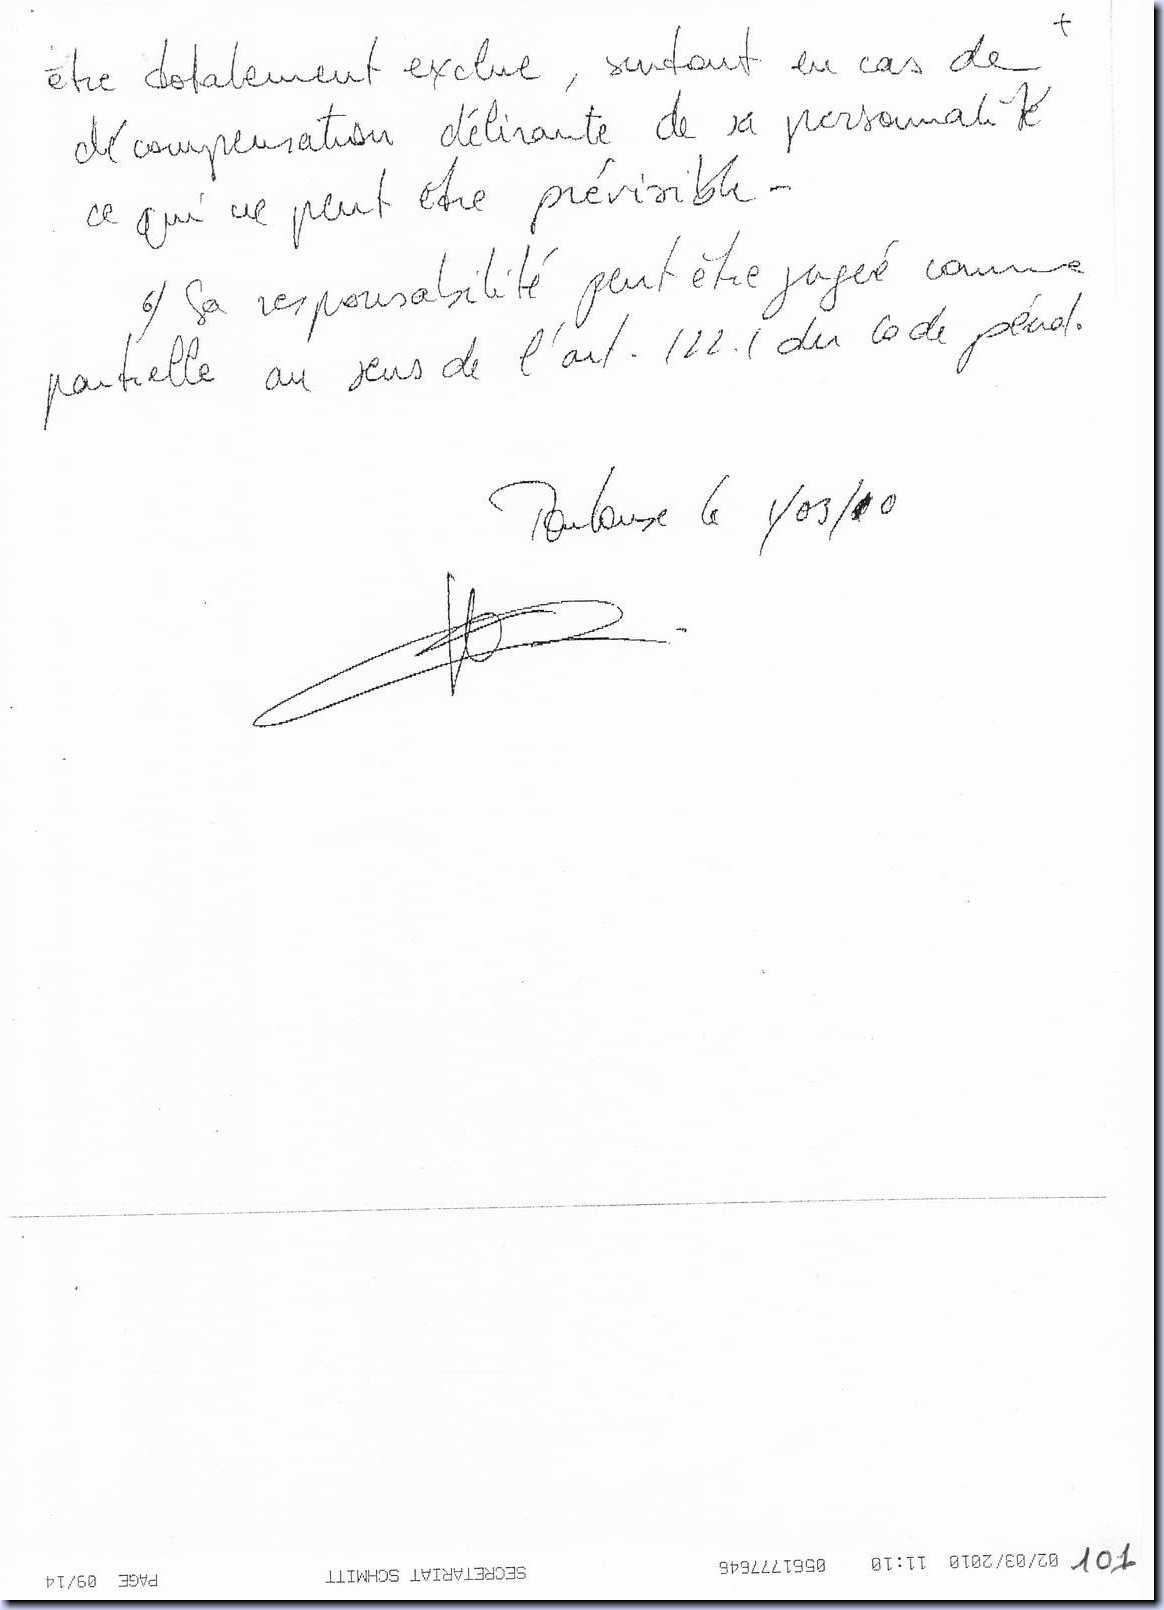 +
être totalement exclue, surtout en cas de
décompensation délirante de sa personnalité
ce qui ne peut être prévisible -
6/ Sa responsabilité peut être jugée comme
partielle au sens de l'art. 122.1 du Code pénal.
Toulouse le 1/03/10
02/03/2010 11:10 0561777646 SECRETARIAT SCHMITT PAGE 09/14
101